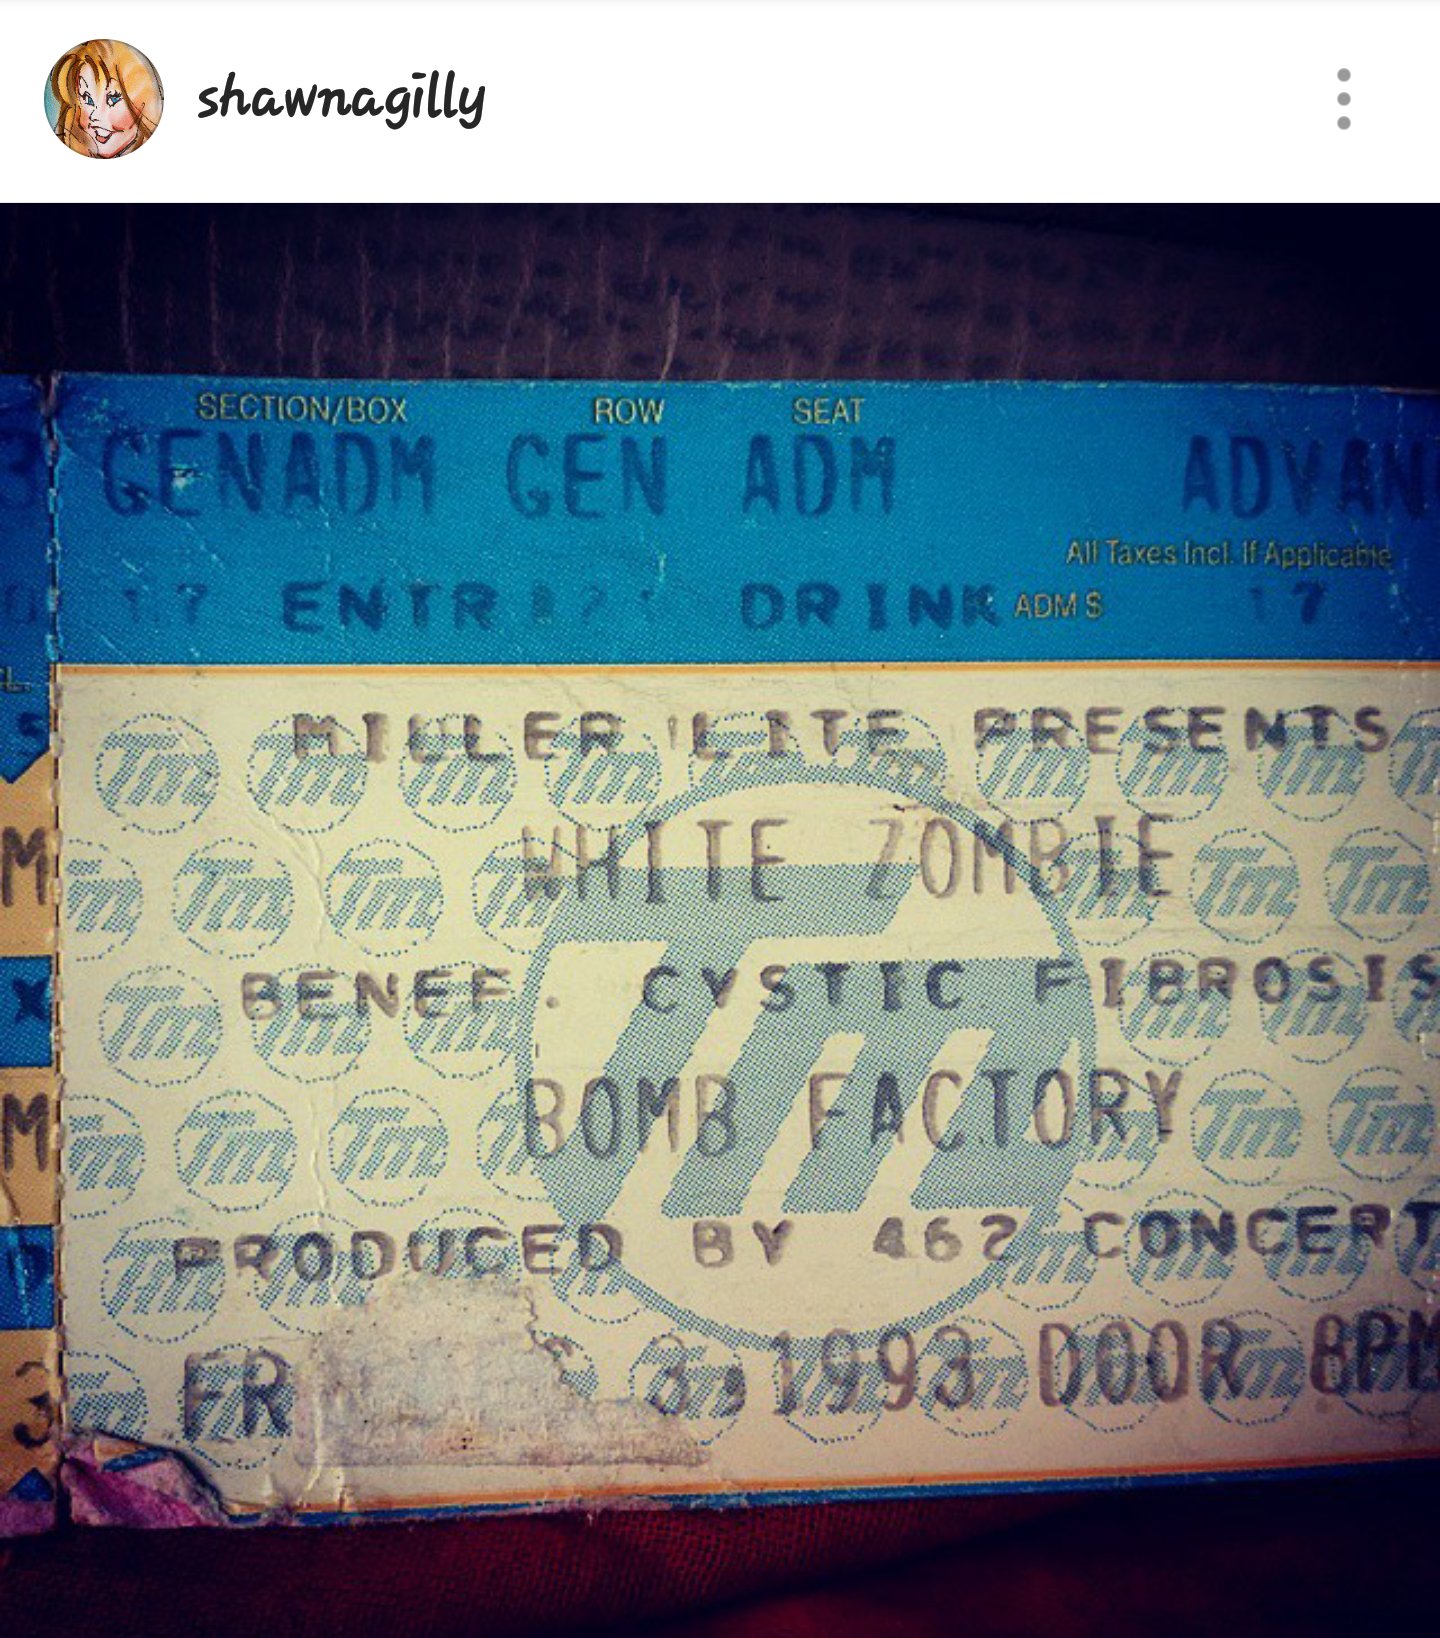 shawnagilly
SECTION/BOX ROW SEAT
GENADM GEN ADM ADVAN
All Taxes Incl. If Applicable
17 ENTR DRINK ADM $ 17
MILLER LITE PRESENTS
WHITE ZOMBIE
BENEF. CYSTIC FIBROSIS
BOMB FACTORY
PRODUCED BY 462 CONCERT
FR 3, 1993 DOOR 8PM